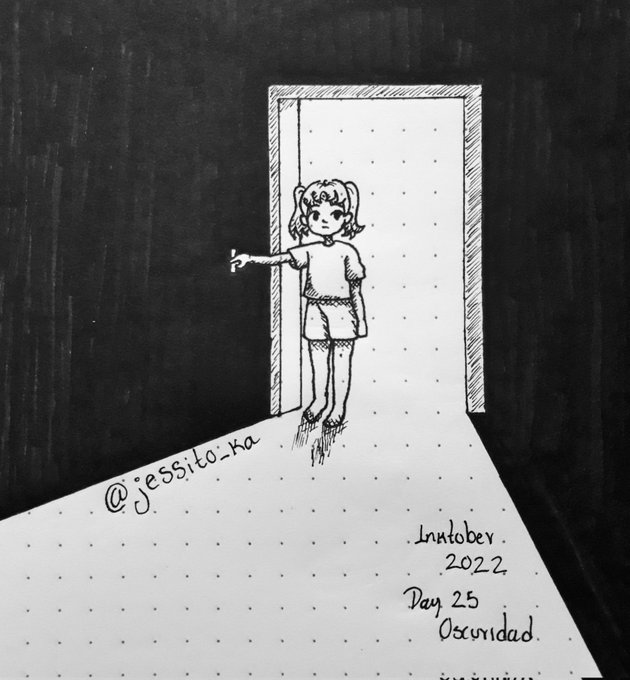 @jessito_ka
Inktober
2022
Day 25
Oscuridad